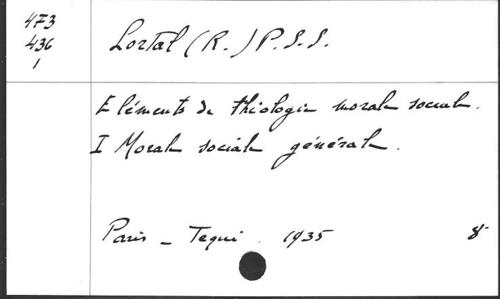 473
436
1
Lortal (R.) P.S.S.
Eléments de théologie morale sociale.
I Morale sociale générale.
Paris - Tequi. 1935 8°